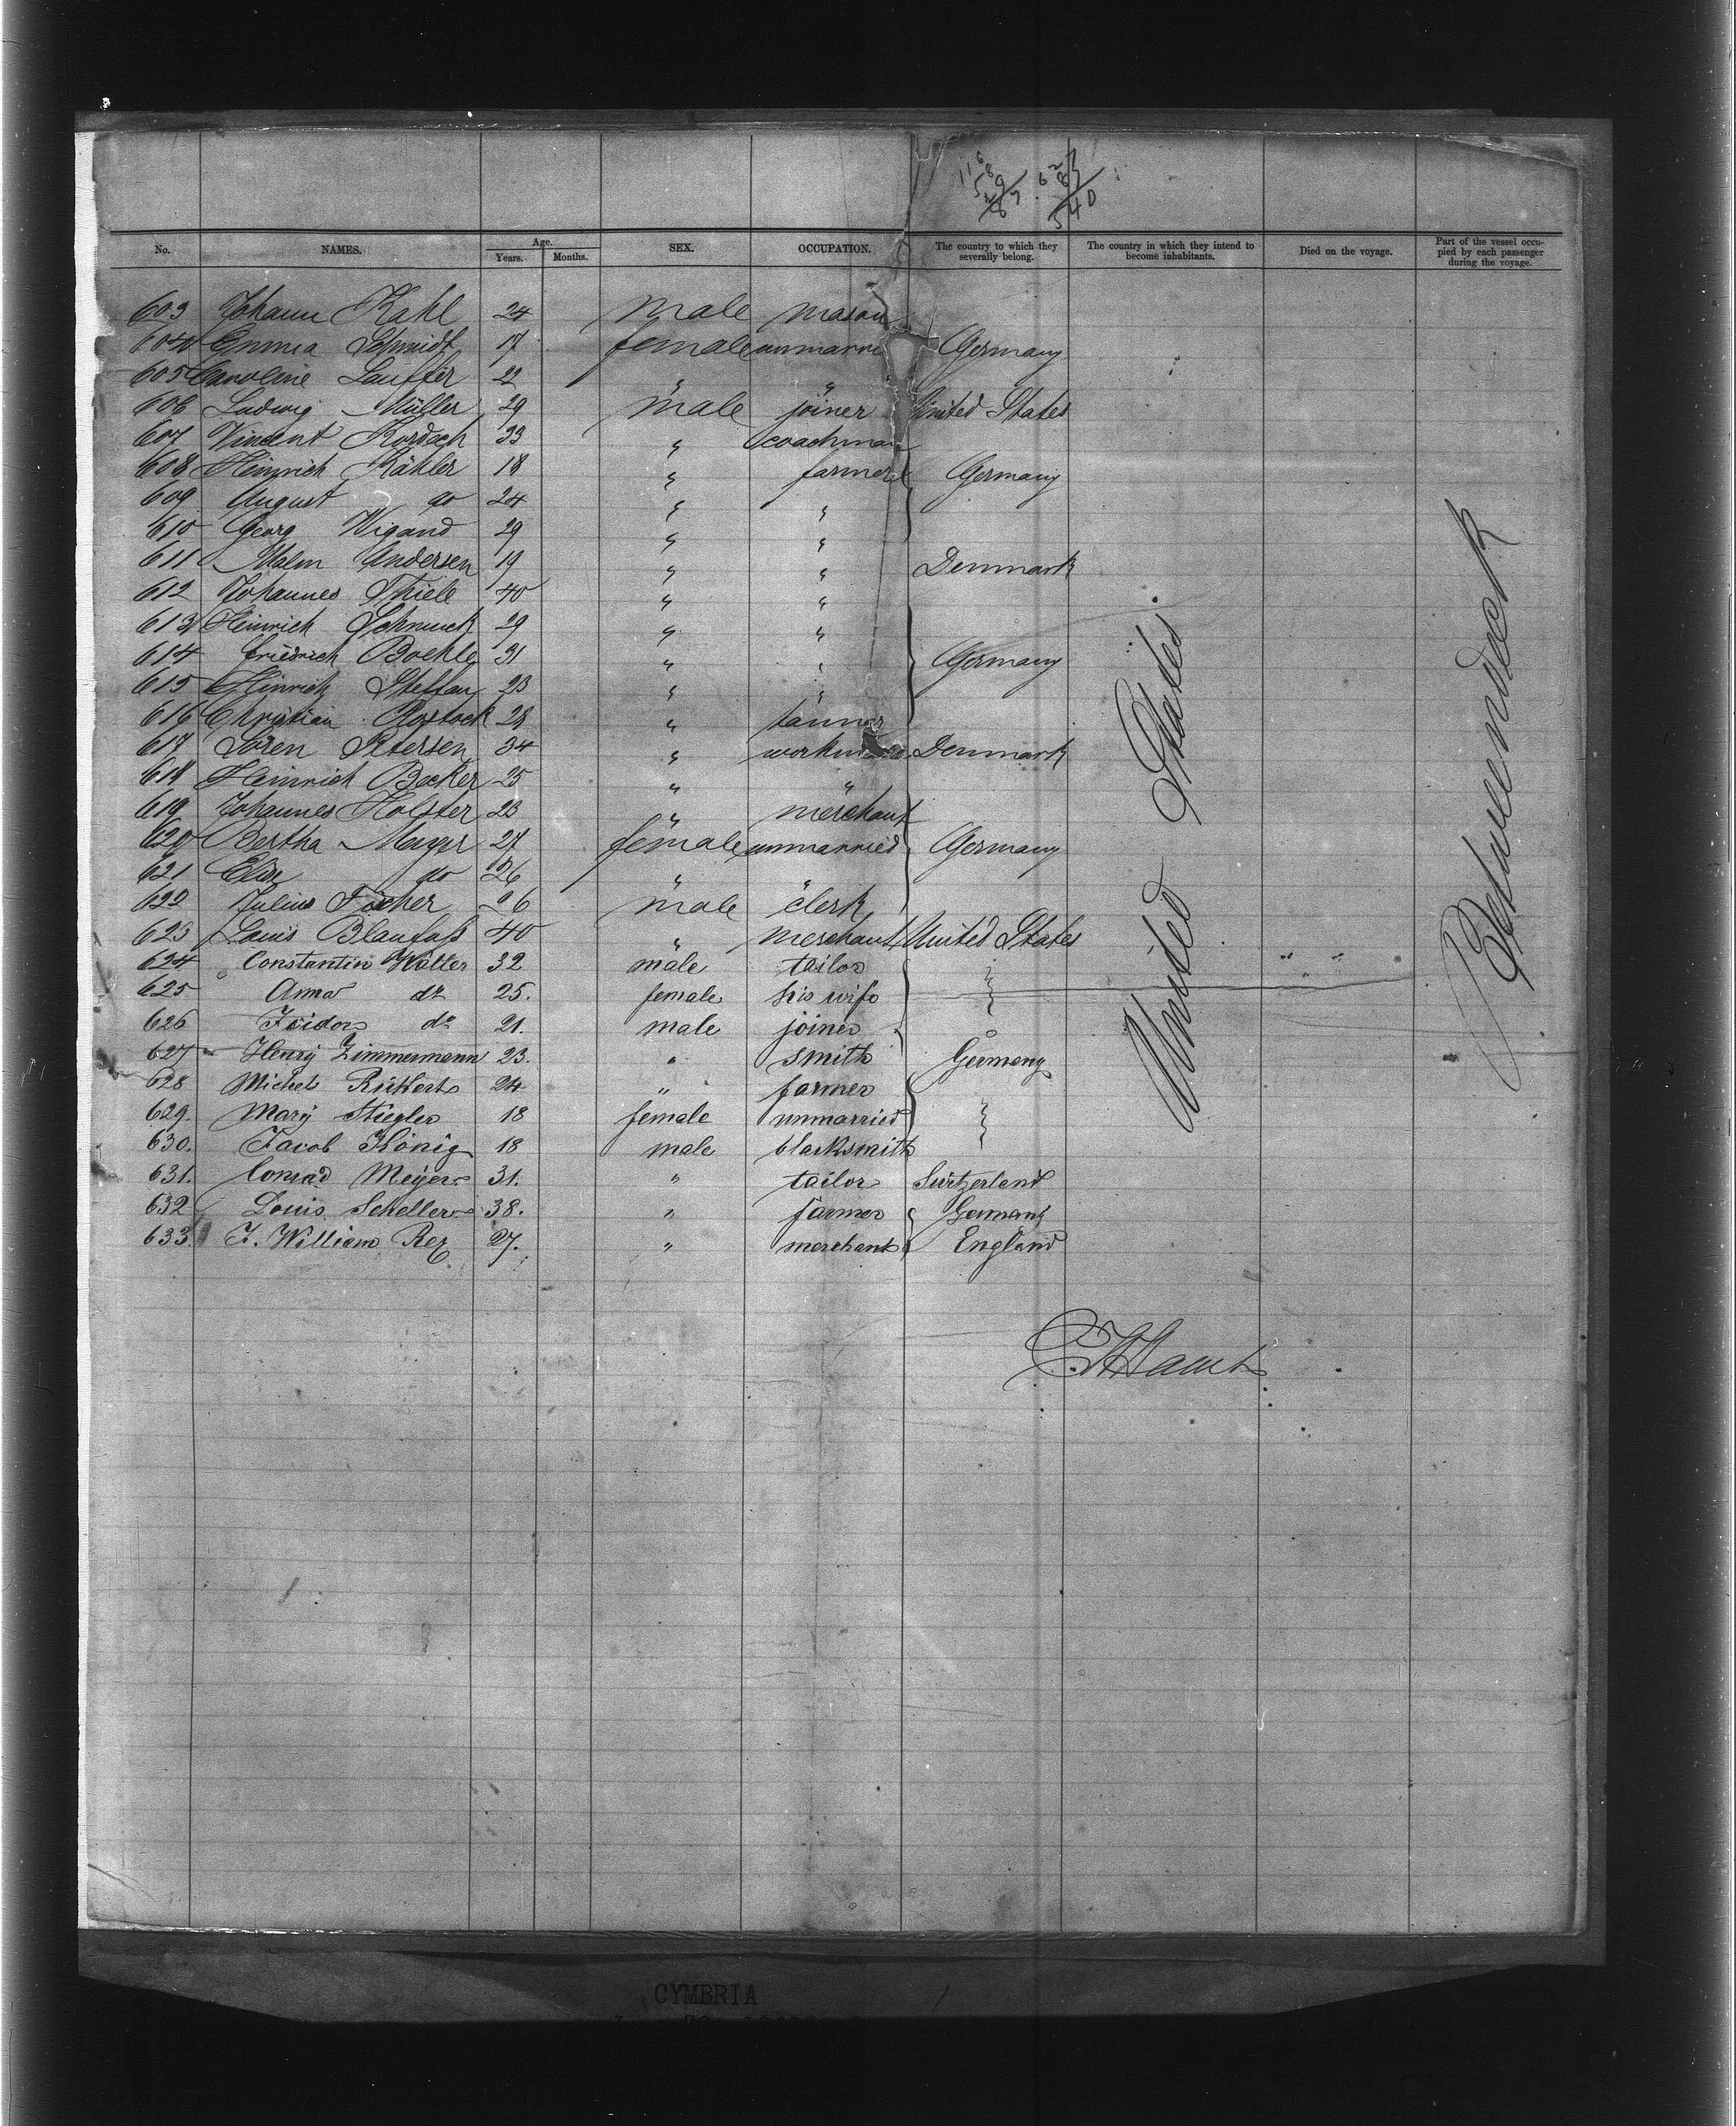 No. NAMES. Age. Years. Months. SEX. OCCUPATION. The country to which they severally belong. The country in which they intend to become inhabitants. Died on the voyage. Part of the vessel occupied by each passenger during the voyage.
603 Johann Kahl 24 male mason
604 Emma Schmidt 17 female unmarried Germany
605 Caroline Lauffer 22 " "
606 Ludwig Müller 29 male joiner United States
607 Vincent Kordech 33 " coachman
608 Heinrich Kähler 18 " farmer Germany
609 August do 24 " "
610 Georg Wigand 29 " "
611 Malm Andersen 19 " " Denmark
612 Johannes Thiele 40 " "
613 Heinrich Schmuck 29 " "
614 Friedrich Boehle 31 " " Germany
615 Hinrich Steffan 23 " "
616 Christian Rostock 28 " tanner
617 Sören Petersen 34 " workman Denmark
618 Heinrich Becker 25 " "
619 Johannes Holster 23 " merchant
620 Bertha Meyer 27 female unmarried Germany
621 Elise do 26 " "
622 Julius Fischer 26 male clerk
623 Louis Blaufuß 40 " merchant United States
624 Constantin Walter 32 male tailor
625 Anna do 25. female his wife
626 Isidor do 21. male joiner
627 Henry Zimmermann 23. " smith Germany
628 Michel Rükkert 24 " farmer
629. Mary Stiegler 18 female unmarried
630. Jacob König 18 male blacksmith
631. Conrad Meyer 31. " tailor Switzerland
632 Louis Scheller 38. " farmer Germany
633. F. William Rex 27. " merchant England
United States
Zwischendeck
CYMBRIA